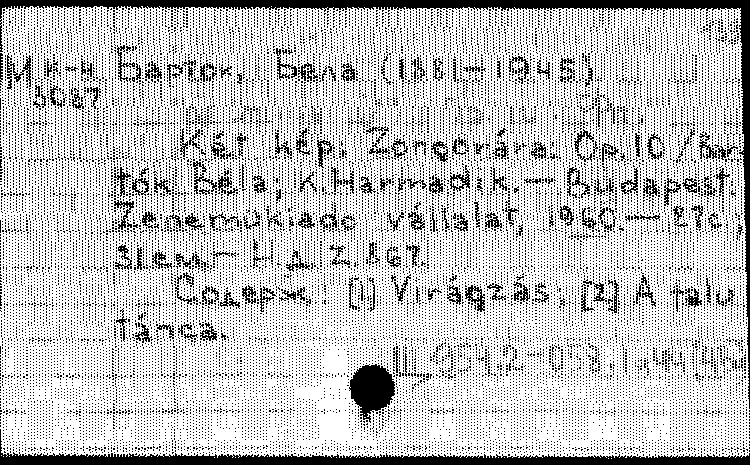 М к-н Барток, Бела (1881-1945)
3087
Két kép. Zongorára. Op. 10 / Bar-
tók Béla; K. Harmadik. — Budapest:
Zeneműkiadó vállalat, 1960. — 27с.;
31см — Н.д. Z. 867.
Содерж.: [1] Virágzás; [2] A falu
tánca.